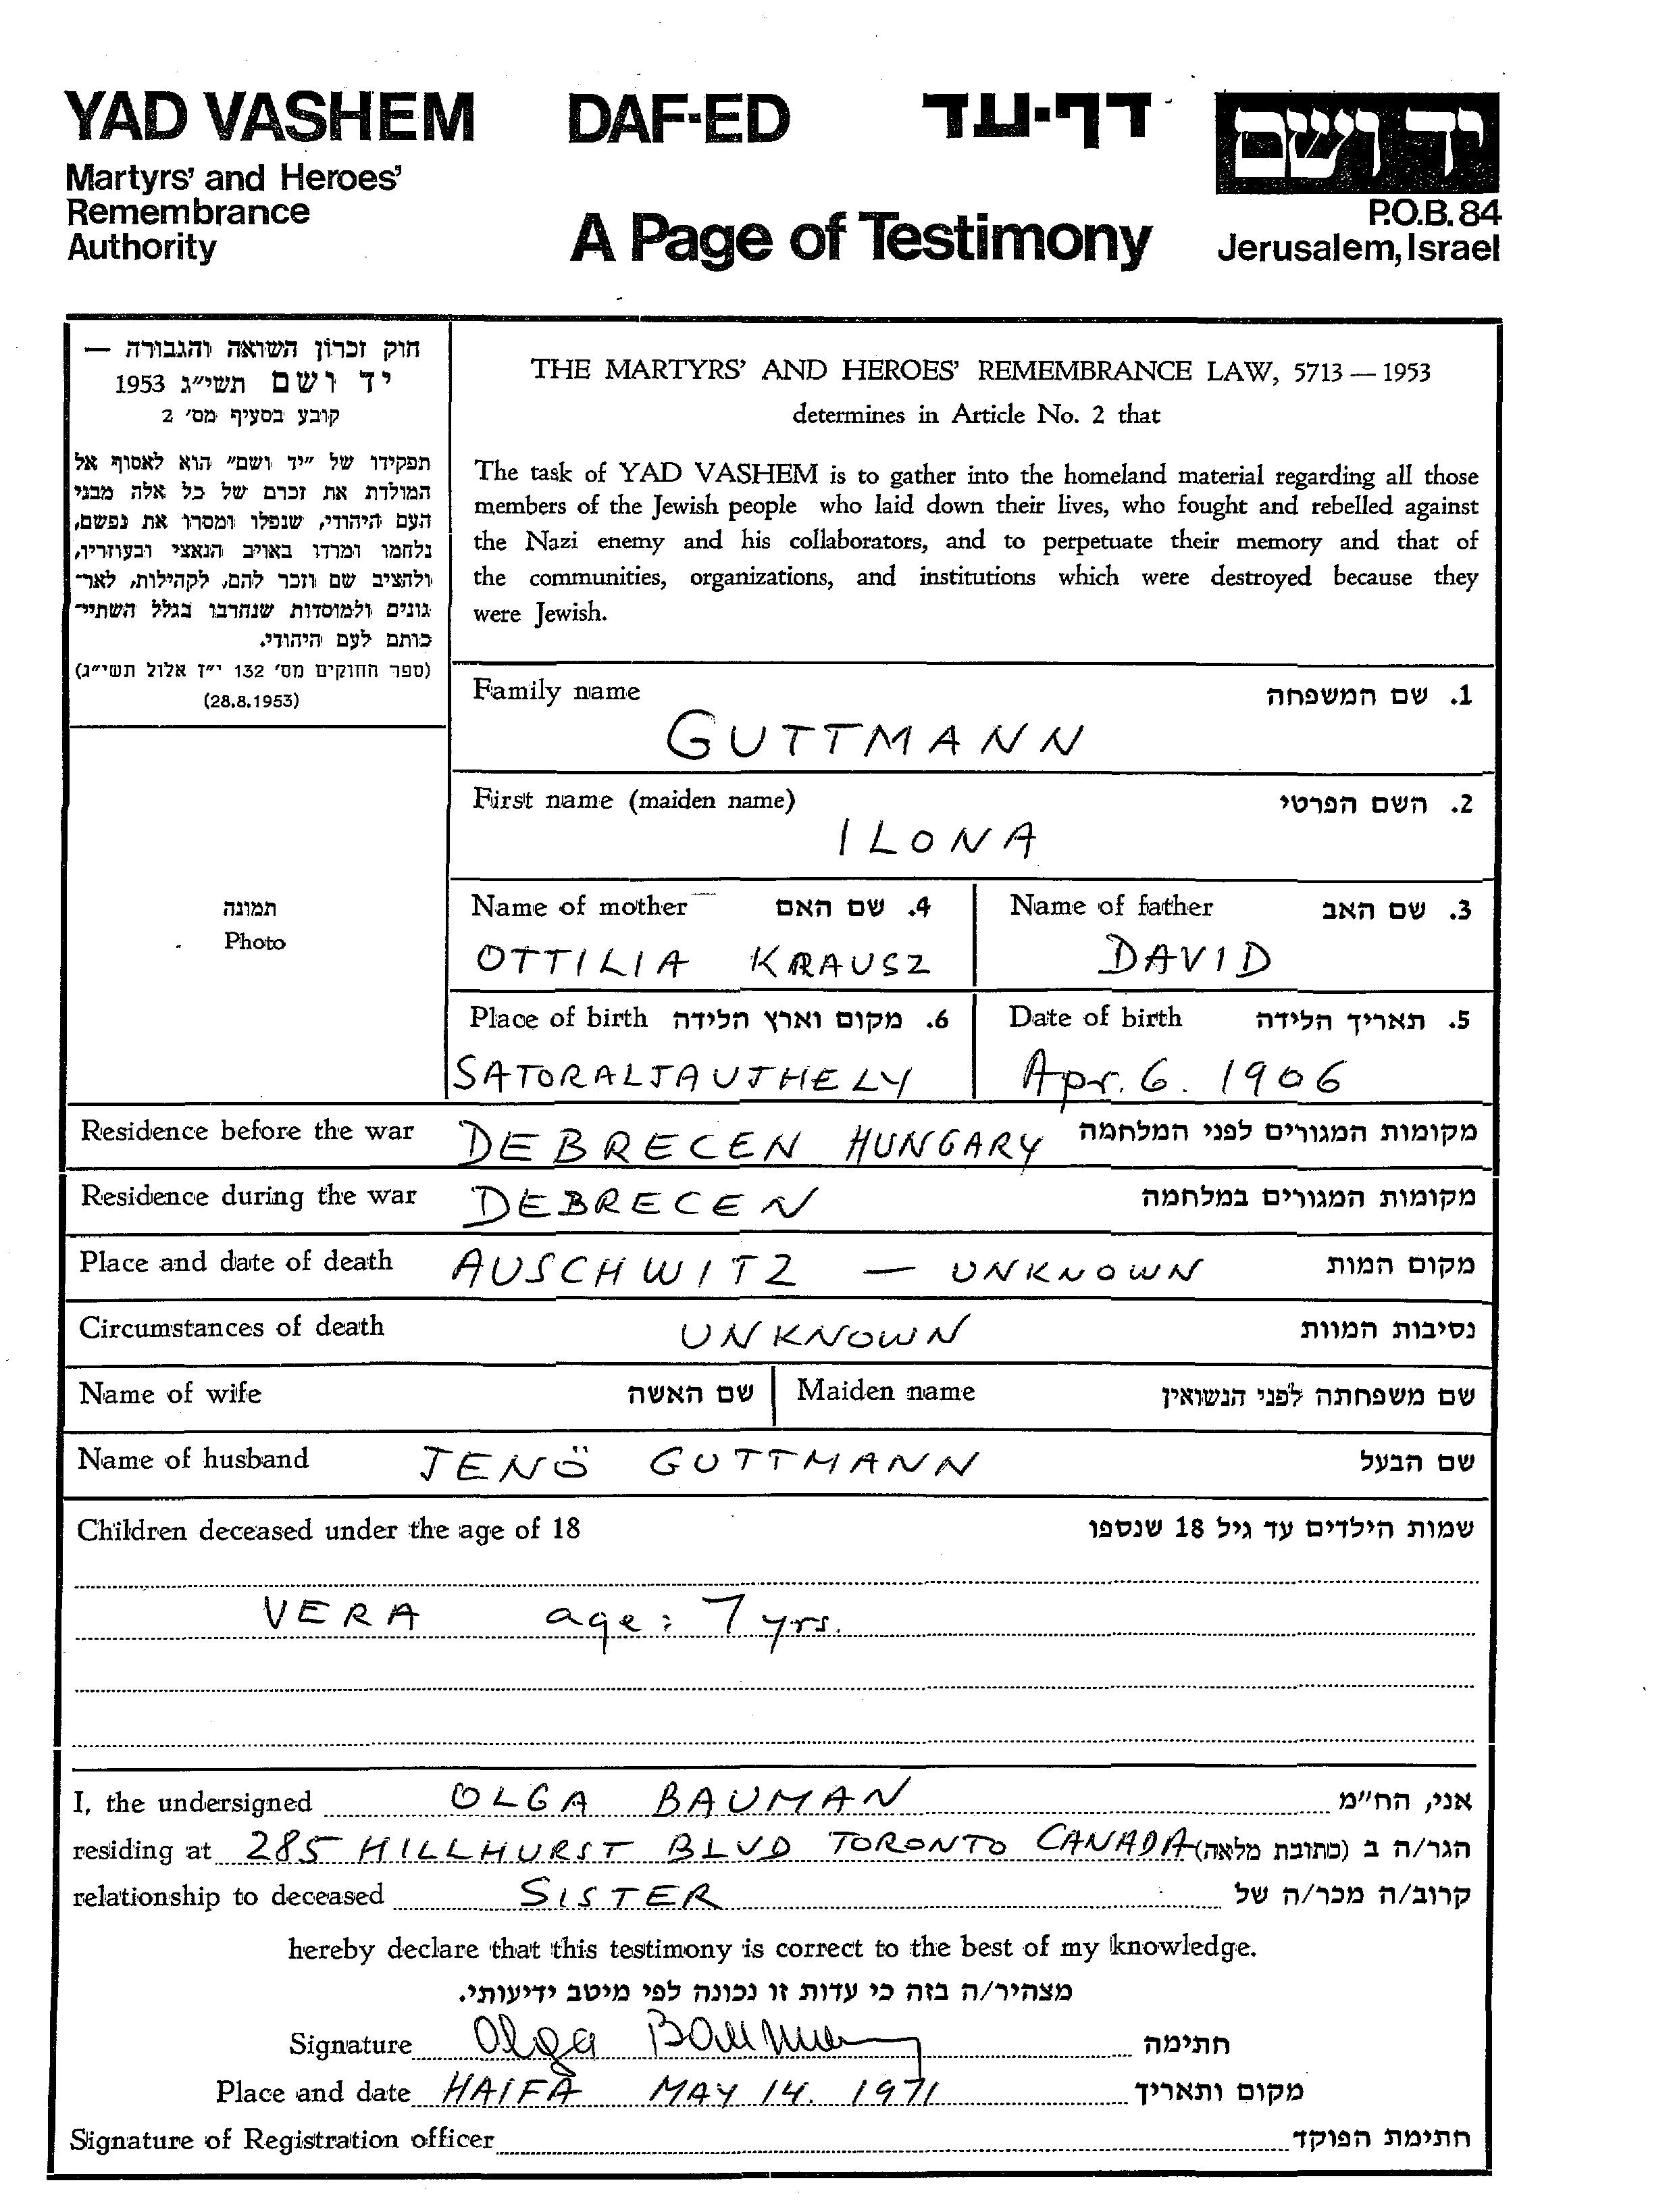 YAD VASHEM DAF-ED דף-עד יד ושם
Martyrs' and Heroes'
Remembrance
Authority
A Page of Testimony
P.O.B. 84
Jerusalem, Israel
חוק זכרון השואה והגבורה —
יד ושם תשי״ג 1953
קובע בסעיף מס׳ 2
תפקידו של ״יד ושם״ הוא לאסוף אל
המולדת את זכרם של כל אלה מבני
העם היהודי, שנפלו ומסרו את נפשם,
נלחמו ומרדו באויב הנאצי ובעוזריו,
ולהציב שם וזכר להם, לקהילות, לאר־
גונים ולמוסדות שנחרבו בגלל השתיי־
כותם לעם היהודי.
(ספר החוקים מס׳ 132 י״ז אלול תשי״ג)
(28.8.1953)
תמונה
Photo
THE MARTYRS' AND HEROES' REMEMBRANCE LAW, 5713 — 1953
determines in Article No. 2 that
The task of YAD VASHEM is to gather into the homeland material regarding all those
members of the Jewish people who laid down their lives, who fought and rebelled against
the Nazi enemy and his collaborators, and to perpetuate their memory and that of
the communities, organizations, and institutions which were destroyed because they
were Jewish.
Family name 1. שם המשפחה
GUTTMANN
First name (maiden name) 2. השם הפרטי
ILONA
Name of mother 4. שם האם Name of father 3. שם האב
OTTILIA KRAUSZ DAVID
Place of birth 6. מקום וארץ הלידה Date of birth 5. תאריך הלידה
SATORALJAUJHELY Apr. 6. 1906
Residence before the war DEBRECEN HUNGARY מקומות המגורים לפני המלחמה
Residence during the war DEBRECEN מקומות המגורים במלחמה
Place and date of death AUSCHWITZ — UNKNOWN מקום המות
Circumstances of death UNKNOWN נסיבות המוות
Name of wife שם האשה Maiden name שם משפחתה לפני הנשואין
Name of husband JENÖ GUTTMANN שם הבעל
Children deceased under the age of 18 שמות הילדים עד גיל 18 שנספו
VERA age: 7 yrs.
I, the undersigned OLGA BAUMAN אני, הח״מ
residing at 285 HILLHURST BLVD TORONTO CANADA הגר/ה ב (כתובת מלאה)
relationship to deceased SISTER קרוב/ה מכר/ה של
hereby declare that this testimony is correct to the best of my knowledge.
מצהיר/ה בזה כי עדות זו נכונה לפי מיטב ידיעותי.
Signature Olga Bauman חתימה
Place and date HAIFA MAY 14. 1971 מקום ותאריך
Signature of Registration officer חתימת הפוקד